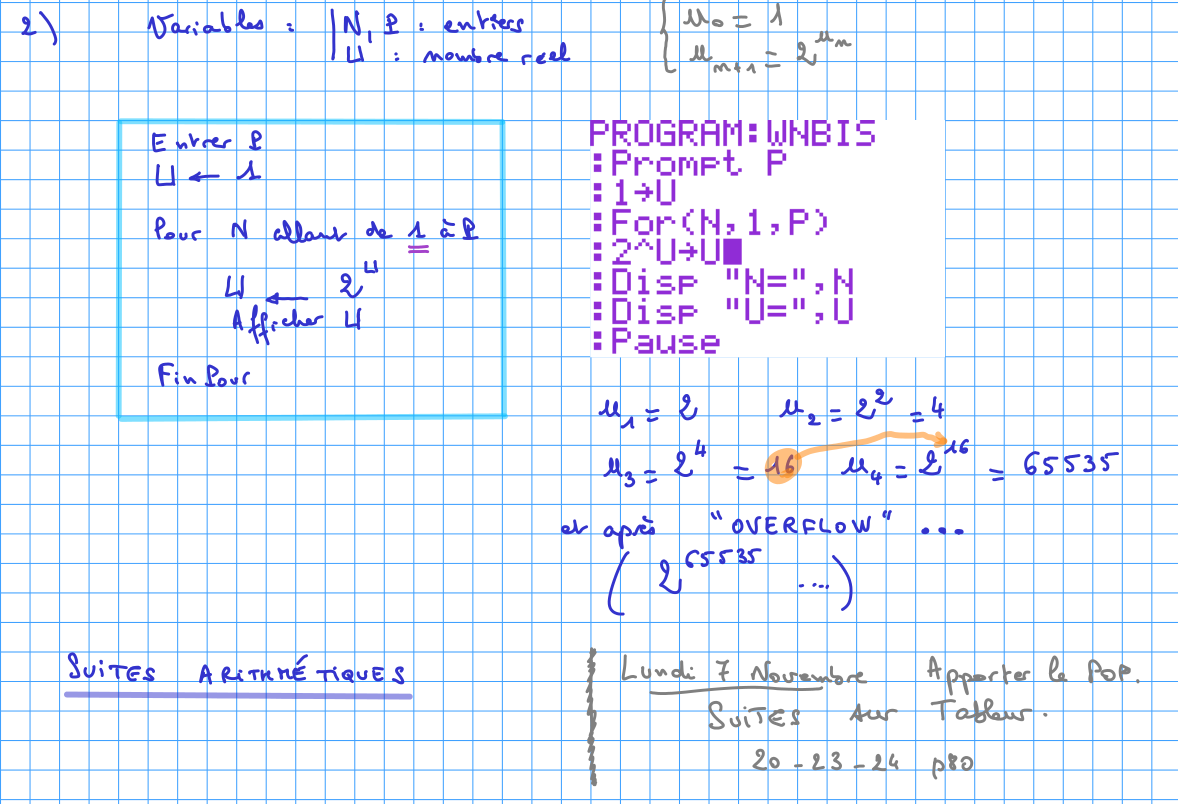 2) Variables : N, P : entiers
U : nombre réel
u₀ = 1
uₙ₊₁ = 2^uₙ
Entrer P
U ← 1
Pour N allant de 1 à P
U ← 2^U
Afficher U
Fin Pour
PROGRAM:WNBIS
:Prompt P
:1→U
:For(N,1,P)
:2^U→U
:Disp "N=",N
:Disp "U=",U
:Pause
u₁ = 2 u₂ = 2² = 4
u₃ = 2⁴ = 16 u₄ = 2¹⁶ = 65535
et après "OVERFLOW" ...
( 2^65535 ....)
SUITES ARITHMÉTIQUES
Lundi 7 Novembre Apporter le POP.
SUITES sur Tableur.
20 - 23 - 24 p80